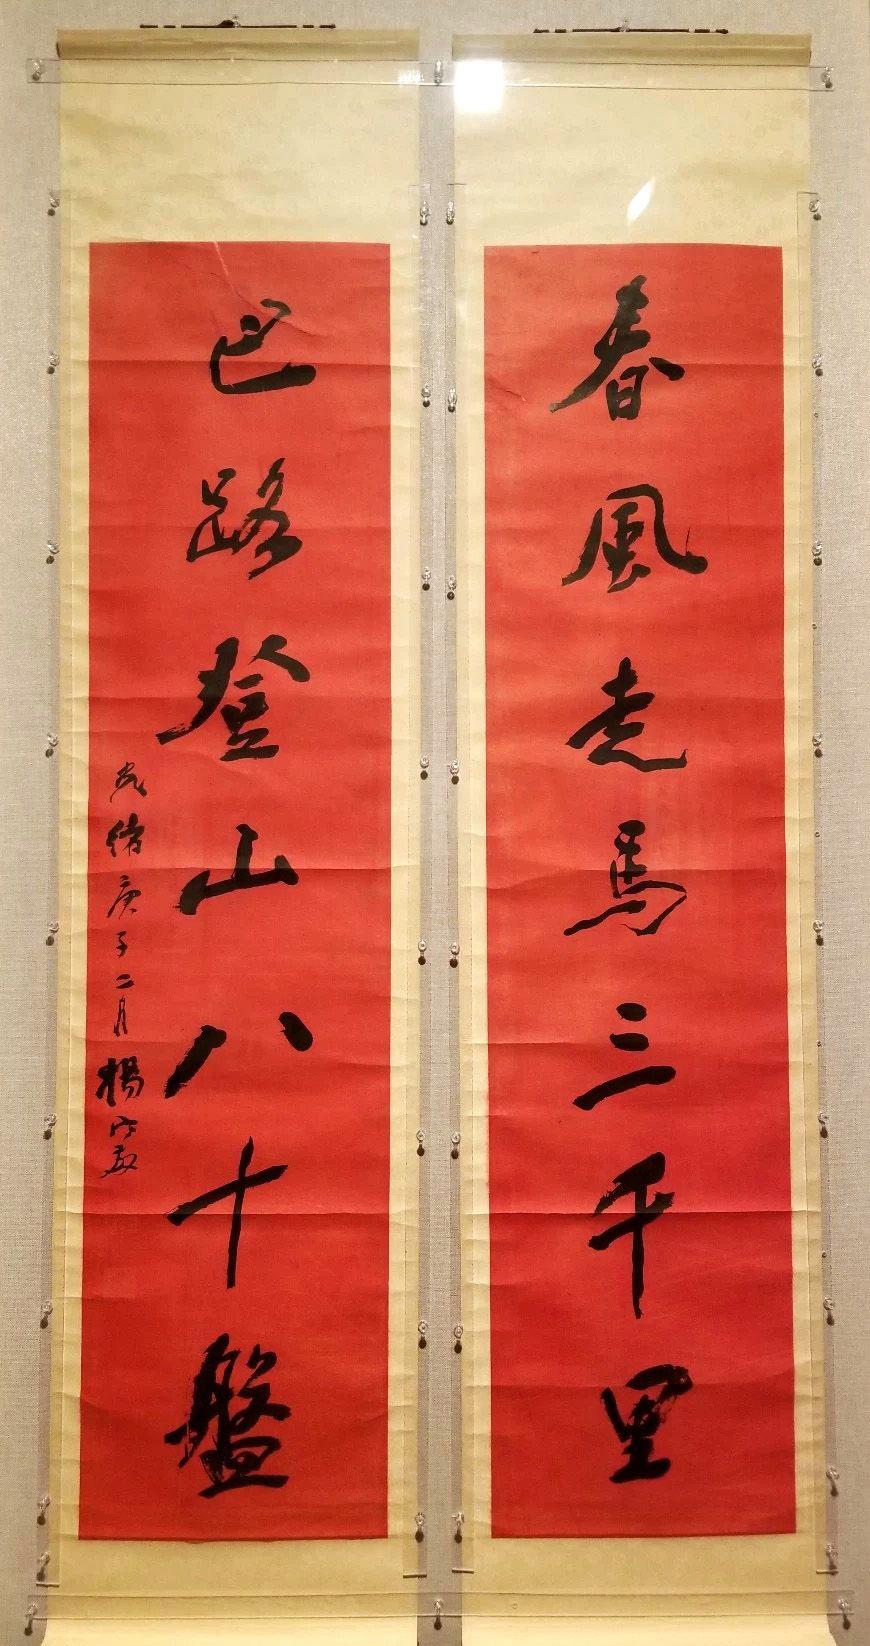 春風走馬三千里
巴路登山八十盤
光緒庚子二月楊守敬